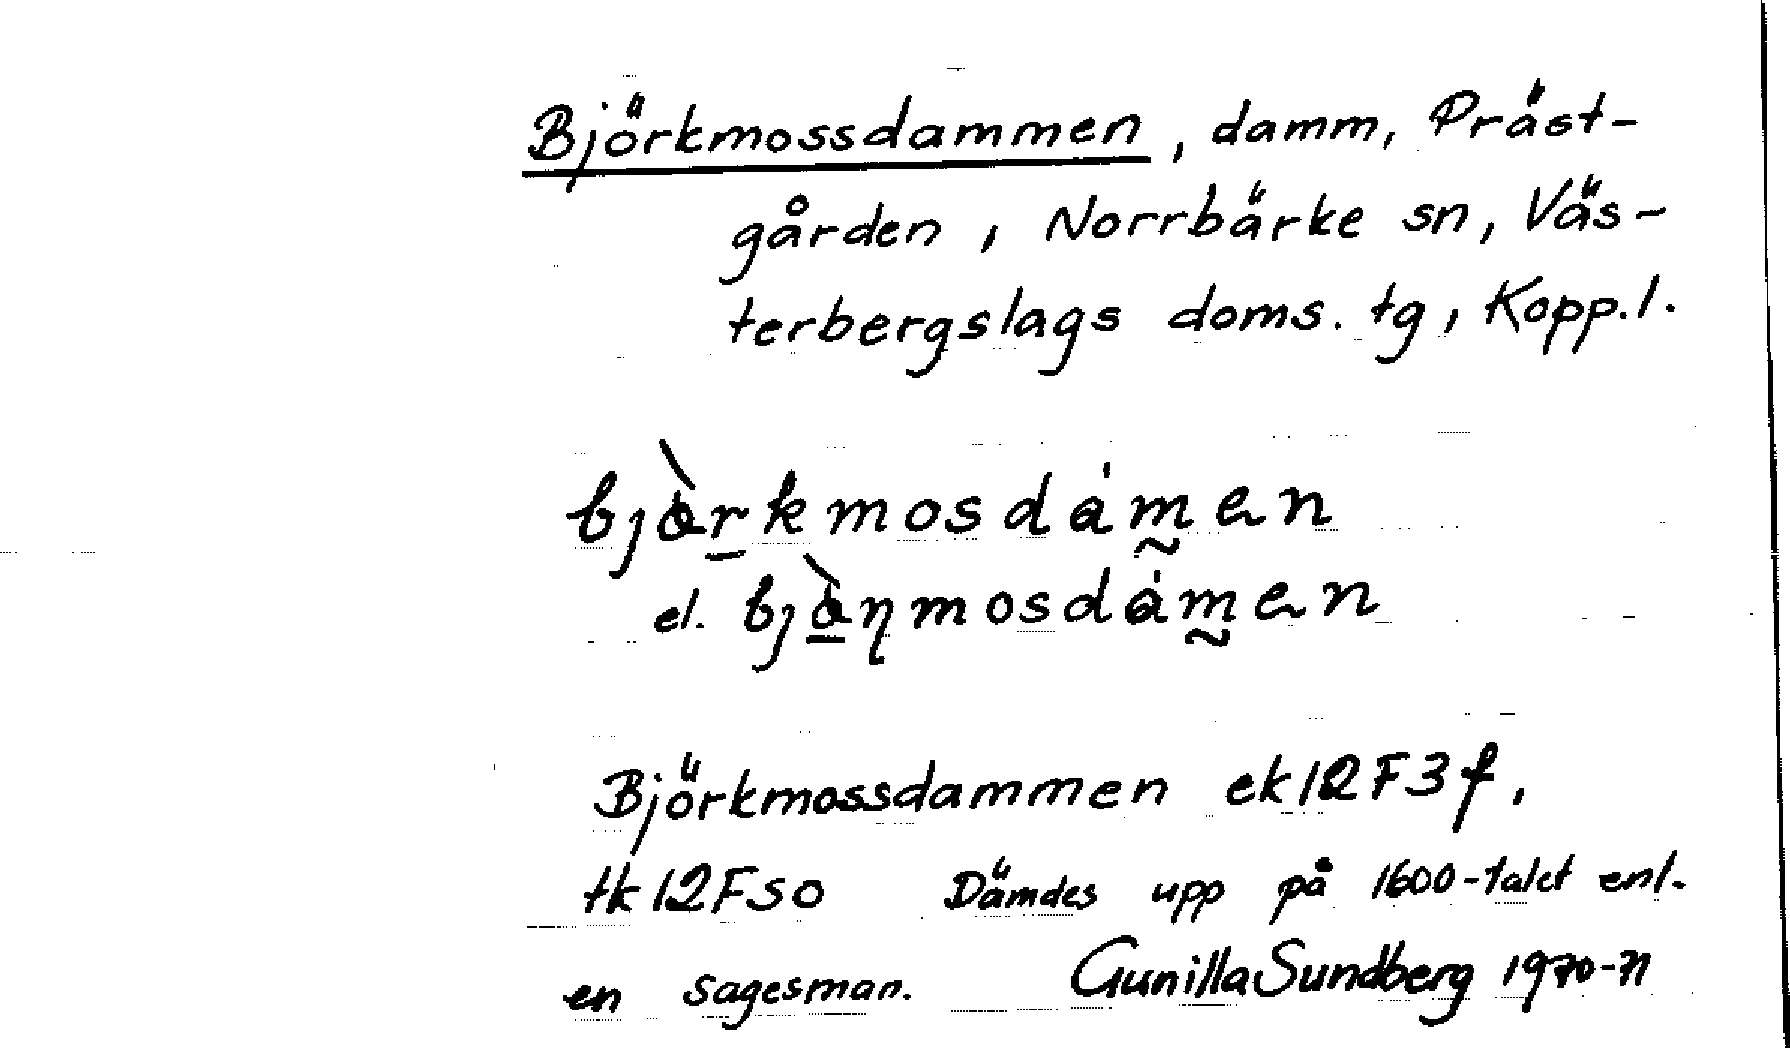 Björkmossdammen, damm, Präst-
gården, Norrbärke sn, Väs-
terbergslags doms. tg, Kopp.l.
bjòrkmosdámen
el. bjòηmosdámen
Björkmossdammen ek12F3f,
tk12FSO Dämdes upp på 1600-talet enl.
en sagesman. Gunilla Sundberg 1970-71